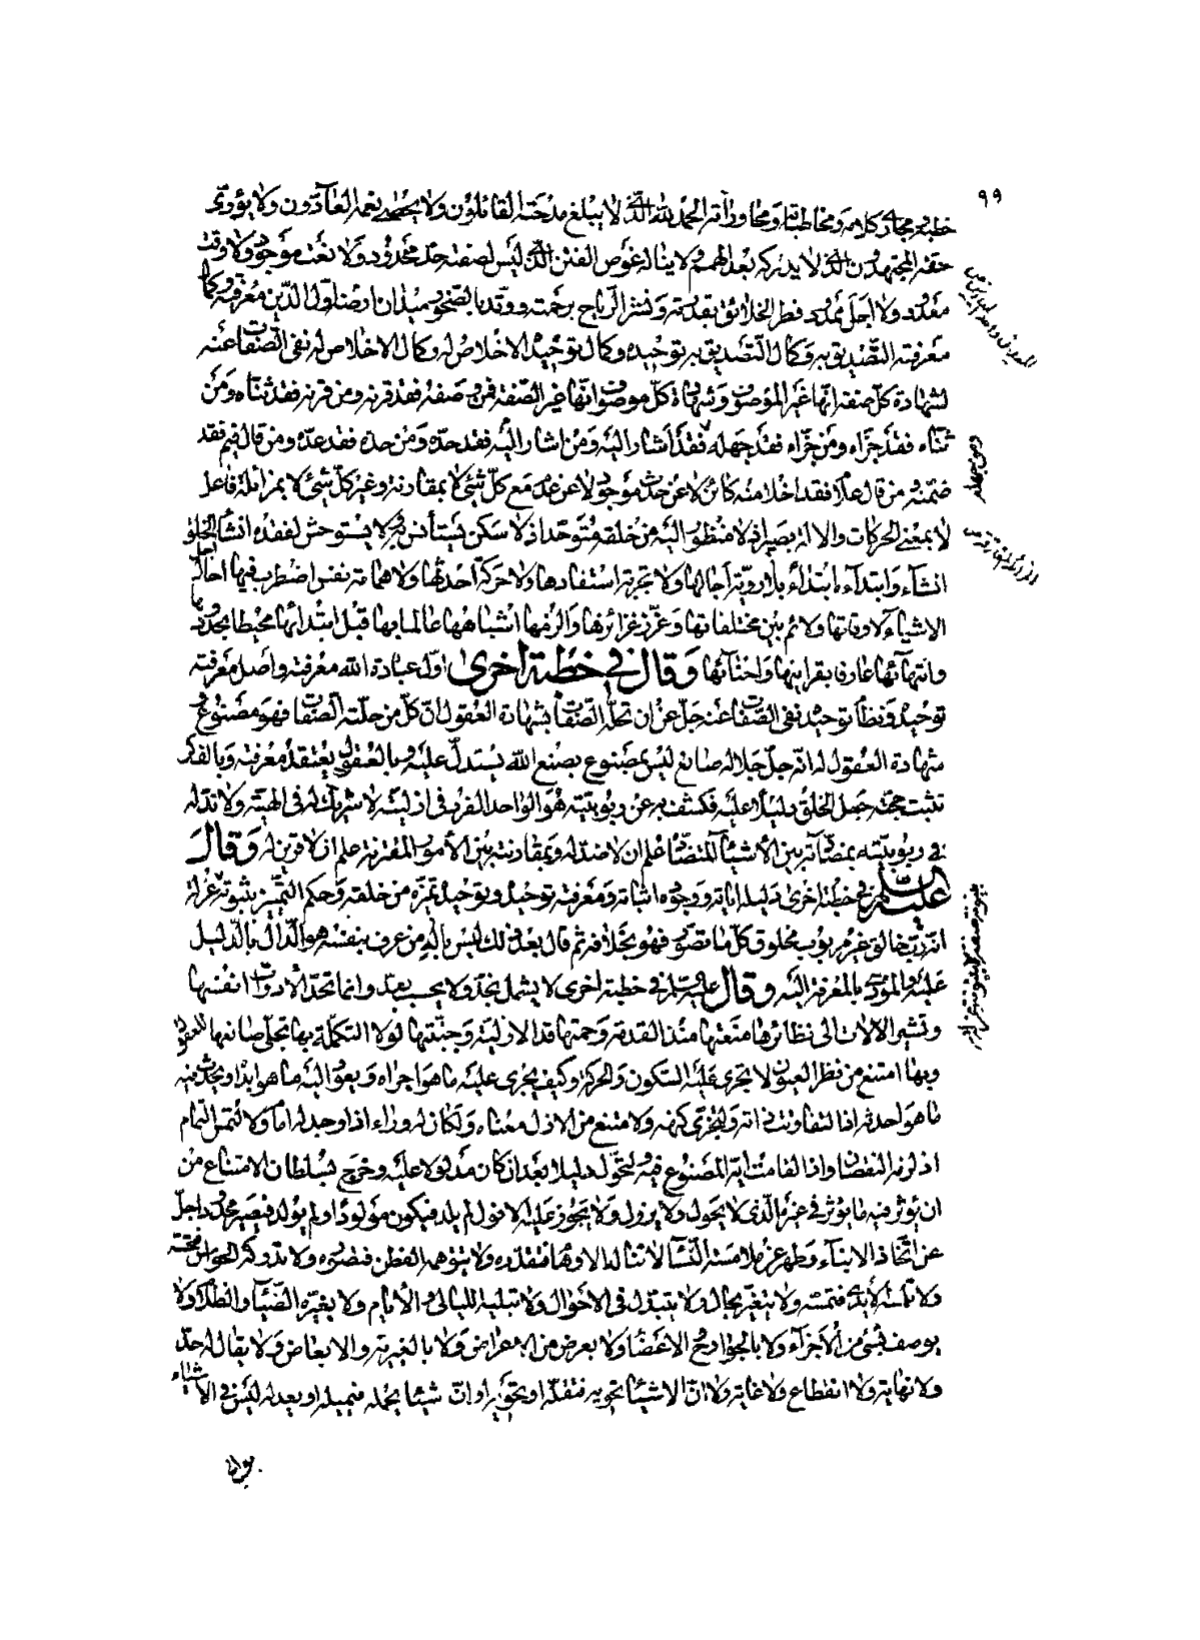 ٩٩
خطبه مجاري كلامه ومخاطباته ومحاوراته الحمد لله الذي لا يبلغ مدحته القائلون ولا يحصي نعمه العادّون ولا يؤدي
حقه المجتهدون الذي لا يدركه بعد الهمم ولا يناله غوص الفتن الذي ليس لصفته حد محدود ولا نعت موجود ولا وقت
معدود ولا اجل ممدود فطر الخلائق بقدرته ونشر الرياح برحمته ووتد بالصخور ميدان ارضه اول الدين معرفته وكمال
معرفته التصديق به وكمال التصديق به توحيده وكمال توحيده الاخلاص له وكمال الاخلاص له نفي الصفات عنه
لشهادة كل صفة انها غير الموصوف وشهادة كل موصوف انه غير الصفة فمن وصفه فقد قرنه ومن قرنه فقد ثناه ومن
ثناه فقد جزاه ومن جزاه فقد جهله فقد اشار اليه ومن اشار اليه فقد حده ومن حده فقد عده ومن قال فيم فقد
ومن جهله
ضمنه ومن قال علام فقد اخلا منه كائن لا عن حدث موجود لا عن عدم مع كل شئ لا بمقارنة وغير كل شئ لا بمزائلة فاعل
لا بمعنى الحركات والالة بصير اذ لا منظور اليه من خلقه متوحد اذ لا سكن يستأنس به ولا يستوحش لفقده انشأ الخلق
انشاء وابتداه ابتداء بلا روية اجالها ولا تجربة استفادها ولا حركة احدثها ولا همامة نفس اضطرب فيها احال
الاشياء لاوقاتها ولائم بين مختلفاتها وغرز غرائزها والزمها اشباهها عالما بها قبل ابتدائها محيطا بحدودها
وانتهائها عارفا بقراينها واحنائها وقال في خطبة اخرى اول عبادة الله معرفته واصل معرفته
توحيده ونظام توحيده نفي الصفات عنه جل عن ان تحله الصفات بشهادة العقول ان كل من حلته الصفات فهو مصنوع و
شهادة العقول له انه جل جلاله صانع ليس بمصنوع بصنع الله يستدل عليه وبالعقول يعتقد معرفته وبالفكر
تثبت حجته جعل الخلق دليلا عليه فكشف به عن ربوبيته هو الواحد الفرد في ازليته لا شريك له في الهيته ولا ند له
في ربوبيته بمضادته بين الاشياء المتضادة علم ان لا ضد له وبمقارنته بين الامور المقترنة علم ان لا قرين له وقال
عليه السلم في خطبة اخرى دليله اياته ووجوده اثباته ومعرفته توحيده وتوحيده تميزه من خلقه وحكم التميز بينونة عزلة
انه رب خالق غير مربوب مخلوق كل ما تصور فهو بخلافه ثم قال بعد ذلك ليس باله من عرف بنفسه هو الدال بالدليل
عليه والمؤدي بالمعرفة اليه وقال عليه السلم في خطبة اخرى لا يشمل بحد ولا يحسب بعد وانما تحد الادوات انفسها
وتشير الالات الى نظائرها منعتها منذ القدمة وحمتها قد الازلية وجنبتها لولا التكملة بها تجلى صانعها للعقول
وبها امتنع من نظر العيون لا تجري عليه السكون والحركة وكيف يجري عليه ما هو اجراه ويعود اليه ما هو ابداه ويحدث فيه
ما هو احدثه اذا لتفاوتت ذاته ولتجزى كنهه ولامتنع من الازل معناه ولكان له وراء اذا وجد له امام ولالتمس التمام
اذ لزمه النقصان واذا لقامت اية المصنوع فيه ولتحول دليلا بعد ان كان مدلولا عليه وخرج بسلطان الامتناع من
ان يؤثر فيه ما يؤثر في غيره الذي لا يحول ولا يزول ولا يجوز عليه الافول لم يلد فيكون مولودا ولم يولد فيصير محدودا جل
عن اتخاذ الابناء وطهر عن ملامسة النساء لا تناله الاوهام فتقدره ولا تتوهمه الفطن فتصوره ولا تدركه الحواس فتحسه
ولا تلمسه الايدي فتمسه ولا يتغير بحال ولا يتبدل في الاحوال ولا تبليه الليالي والايام ولا يغيره الضياء والظلام ولا
يوصف بشئ من الاجزاء ولا بالجوارح والاعضاء ولا بعرض من الاعراض ولا بالغيرية والابعاض ولا يقال له حد
ولا نهاية ولا انقطاع ولا غاية ولا ان الاشياء تحويه فتقله او تهويه او ان شيئا يحمله فيميله او يعدله ليس في الاشياء
بوالج